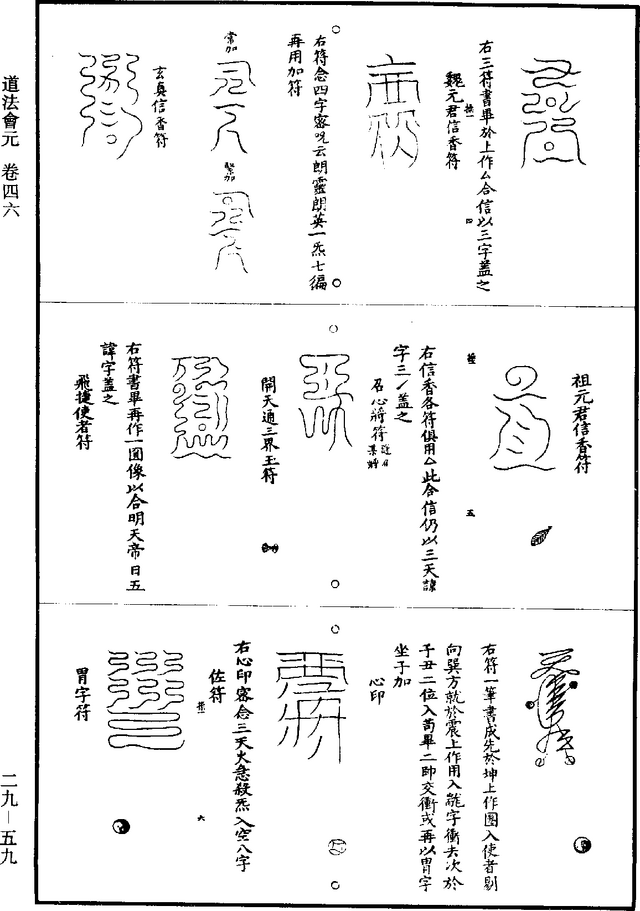 道法會元 卷四六
二九—五九
右三符書畢於上作厶合信以三字蓋之
魏元君信香符
四
右符念四字密咒云朗靈朗英一炁七徧
再用加符
常加
緊加
玄真信香符
祖元君信香符
五
右信香各符俱用厶此合信仍以三天諱
字三ノ蓋之
召心將符
開天通三界玉符
右符書畢再作一圓像以合明天帝日五
諱字蓋之
飛捷使者符
右符一筆書成先於坤上作圈入使者剔
向巽方就於震上作用入䶬字衝去次於
子丑二位入苟畢二帥交衝或再以胃字
坐子加
心印
右心印密念三天火急殺炁入空八字
佐符
六
胃字符